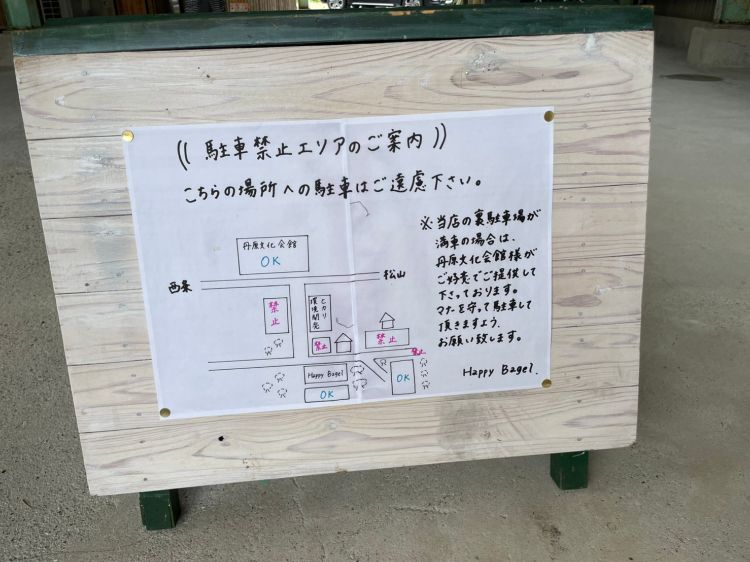 (( 駐車禁止エリアのご案内 ))
こちらの場所への駐車はご遠慮下さい。
丹原文化会館
OK
西条
松山
禁止
ヒカリ
環境開発
禁止
禁止
禁止
Happy Bagel
OK
OK
※当店の裏駐車場が
満車の場合は、
丹原文化会館様が
ご好意でご提供して
下さっております。
マナーを守って駐車して
頂きますよう、
お願い致します。
Happy Bagel.